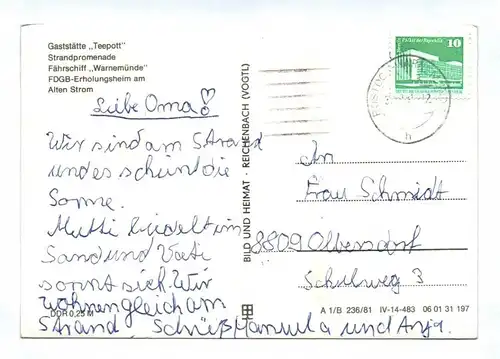 Gaststätte „Teepott"
Strandpromenade
Fährschiff „Warnemünde"
FDGB-Erholungsheim am
Alten Strom
Liebe Oma!
Wir sind am Strand
und es scheint die
Sonne.
Mutti buddelt im
Sand und Vati
sonnt sich. Wir
wohnen gleich am
Strand. Manuela und Anja.
DDR 0,25 M
BILD UND HEIMAT · REICHENBACH (VOGTL)
10
An
Frau Schmidt
8809 Olbersdorf
Schulweg 3
A 1/B 236/81 IV-14-483 06 01 31 197